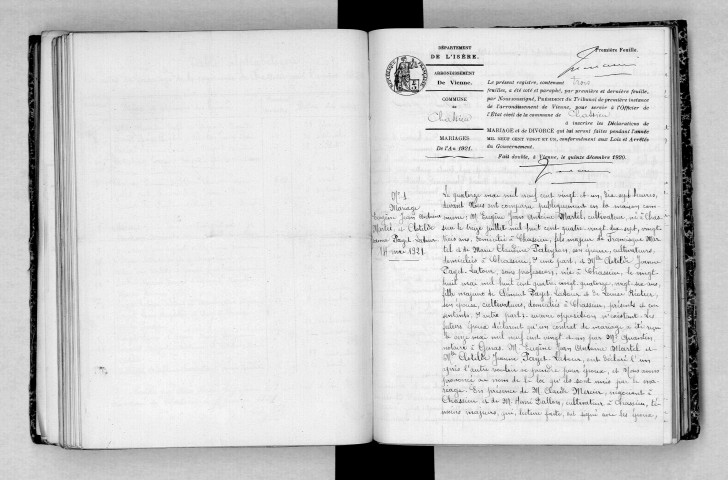 DÉPARTEMENT
DE L'ISÈRE.
ARRONDISSEMENT
De Vienne.
COMMUNE
de
Chassieu
MARIAGES
De l'An 1921.
Première Feuille.
Le présent registre, contenant trois
feuilles, a été coté et paraphé, par première et dernière feuille,
par Nous soussigné, Président du Tribunal de première instance
de l'arrondissement de Vienne, pour servir à l'Officier de
l'État civil de la commune de Chassieu
à inscrire les Déclarations de
MARIAGE et de DIVORCE qui lui seront faites pendant l'année
MIL NEUF CENT VINGT ET UN, conformément aux Lois et Arrêtés
du Gouvernement.
Fait double, à Vienne, le quinze décembre 1920.
N° 1
Mariage
Eugène Jean Antoine
Martel, et Clotilde
Jeanne Paget Latour
14 mai 1921
Le quatorze mai mil neuf cent vingt et un, dix sept heures,
devant Nous ont comparu publiquement en la maison com
mune: M. Eugène Jean Antoine Martel, cultivateur, né à Chas
sieu le treize juillet mil huit cent quatre vingt dix sept, vingt
trois ans, domicilié à Chassieu, fils majeur de Mar
tel et de Marie Claudine son épouse, cultivateurs,
domiciliés à Chassieu, d'une part, et Mlle Clotilde Jeanne
Paget-Latour, sans profession, née à Chassieu, le vingt
huit mai mil huit cent quatre vingt quatorze, vingt six ans,
fille majeure de Paget Latour et de Louise
son épouse, cultivateurs, domiciliés à Chassieu, présents et con
sentants, d'autre part; aucune opposition n'existant. Les
futurs époux déclarent qu'un contrat de mariage a été reçu
le mai mil neuf cent vingt et un par Me
notaire à Genas. M. Eugène Jean Antoine Martel et
Mlle Clotilde Jeanne Paget-Latour, ont déclaré l'un
après l'autre vouloir se prendre pour époux, et Nous avons
prononcé au nom de la loi qu'ils sont unis par le ma
riage. En présence de M. Claude négociant à
Chassieu et de M. cultivateur à Chassieu, té
moins majeurs, qui, lecture faite, ont signé avec les époux,